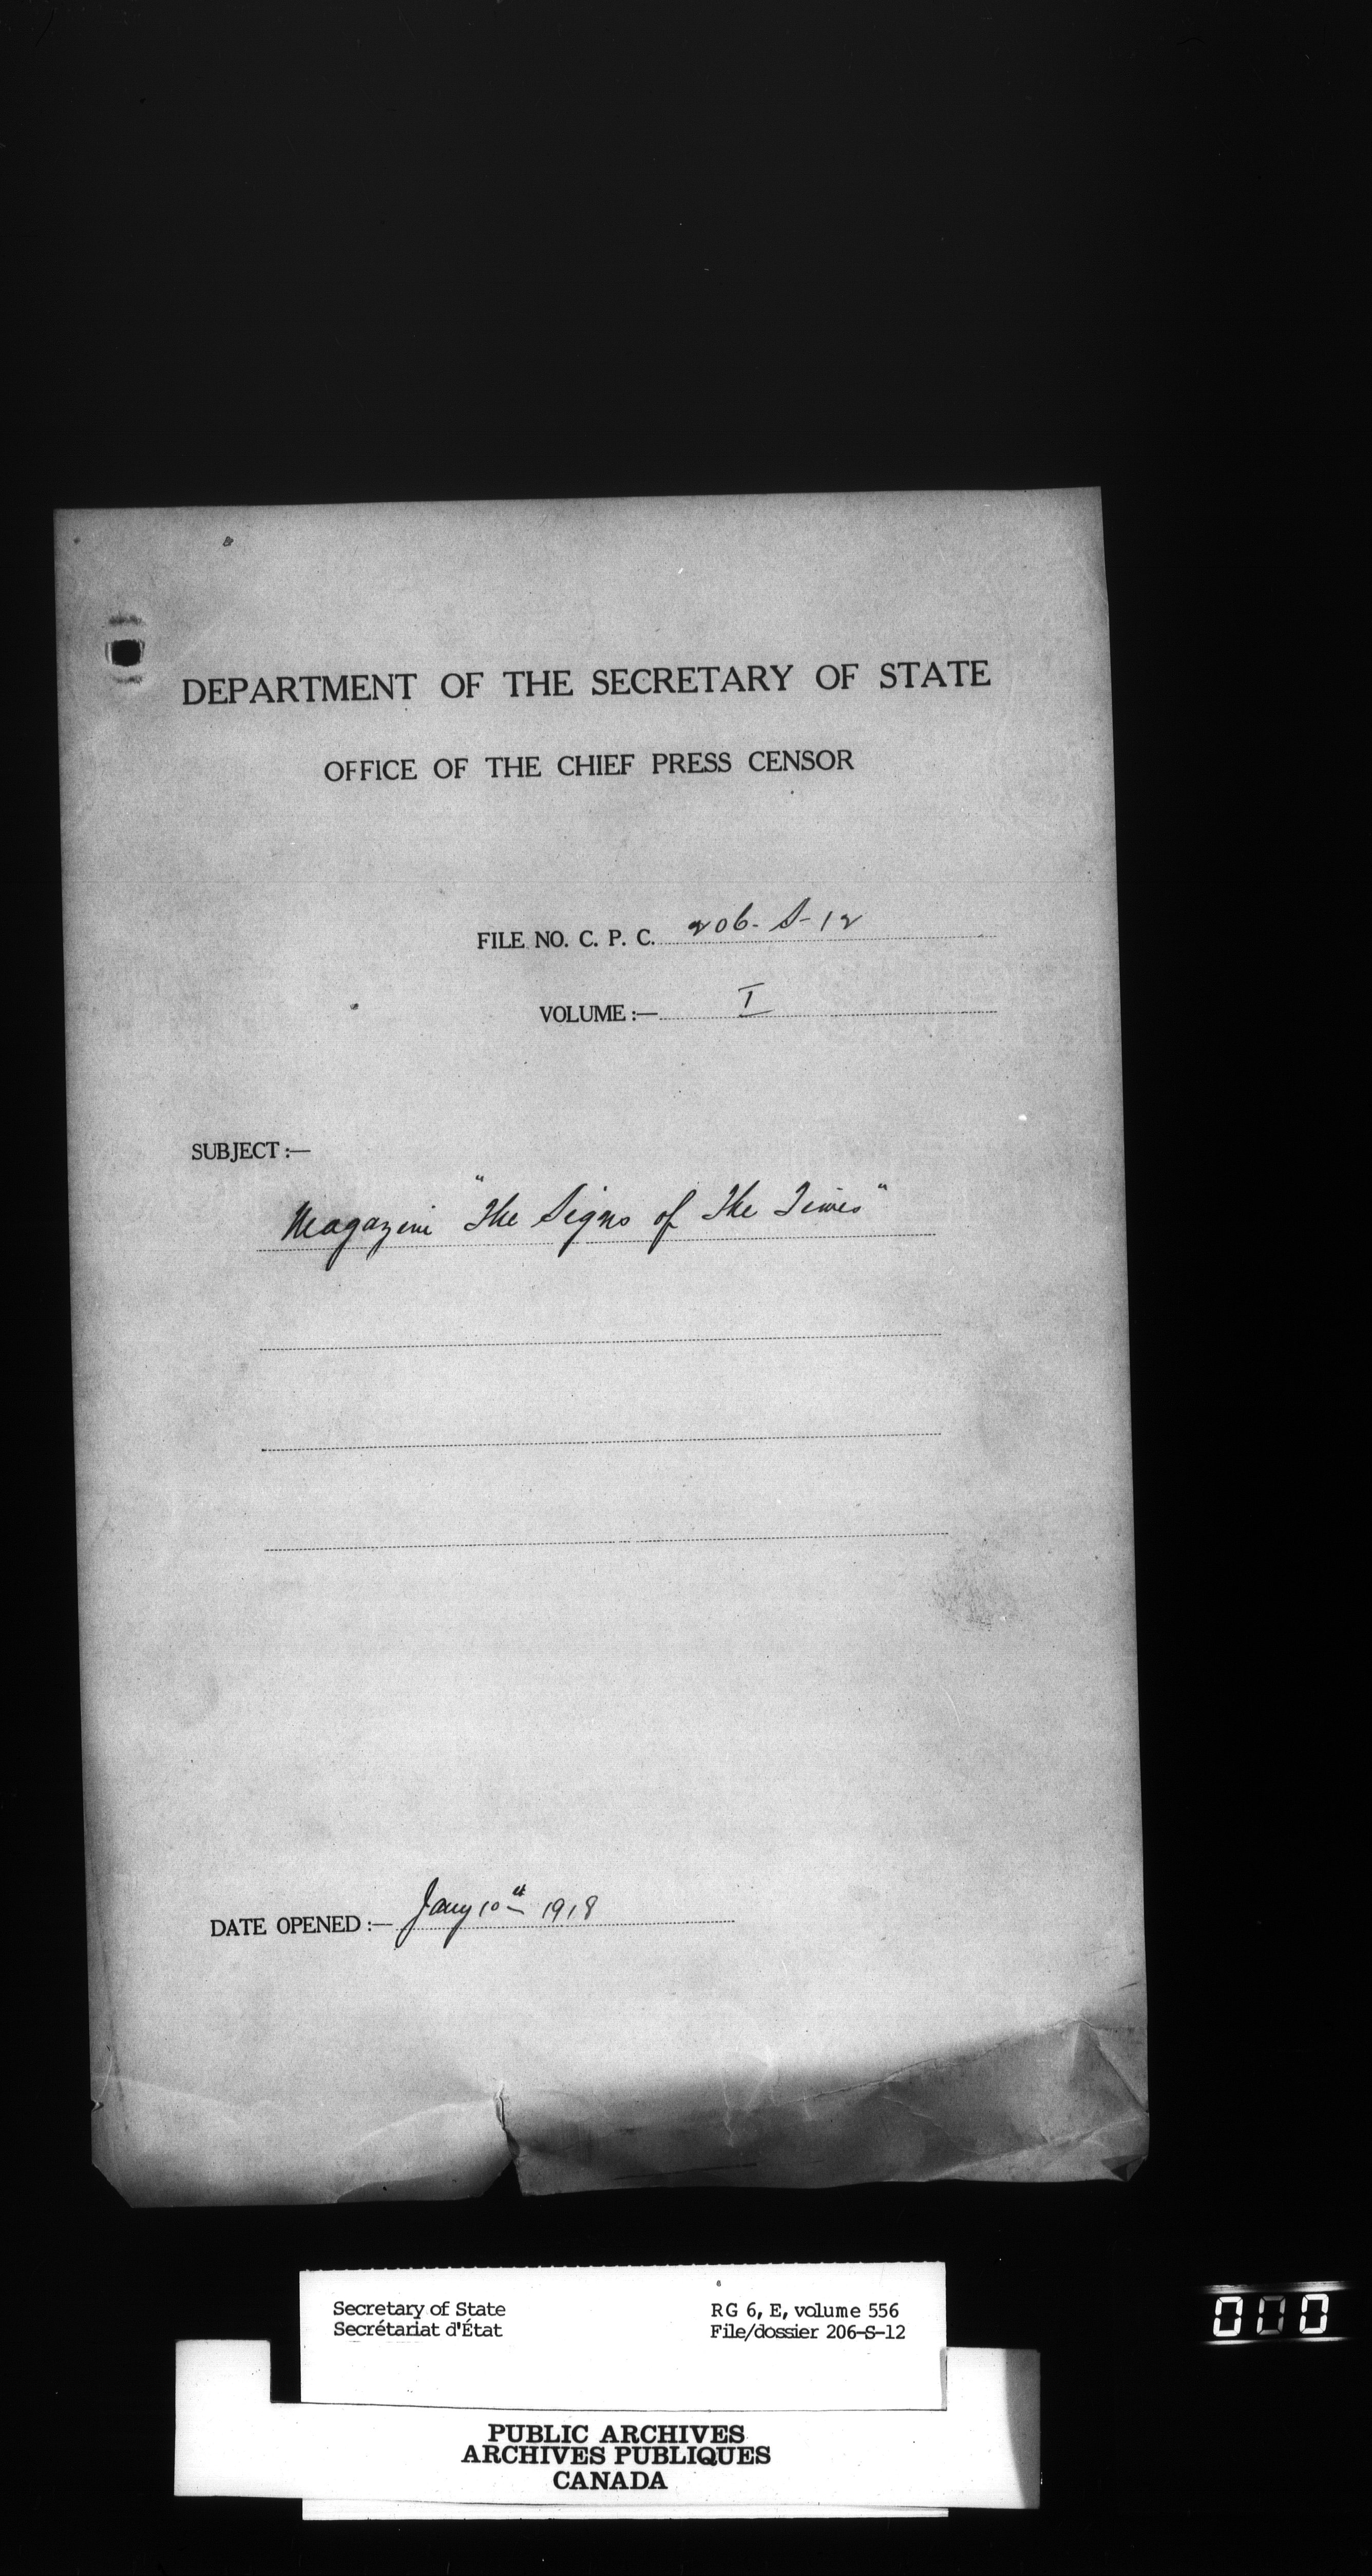 DEPARTMENT OF THE SECRETARY OF STATE
OFFICE OF THE CHIEF PRESS CENSOR
FILE NO. C. P. C. 206-S-12
VOLUME :— I
SUBJECT :—
Magazine "The Signs of The Times"
DATE OPENED :— Jany 10th 1918
Secretary of State
Secrétariat d'État
RG 6, E, volume 556
File/dossier 206-S-12
PUBLIC ARCHIVES
ARCHIVES PUBLIQUES
CANADA
000